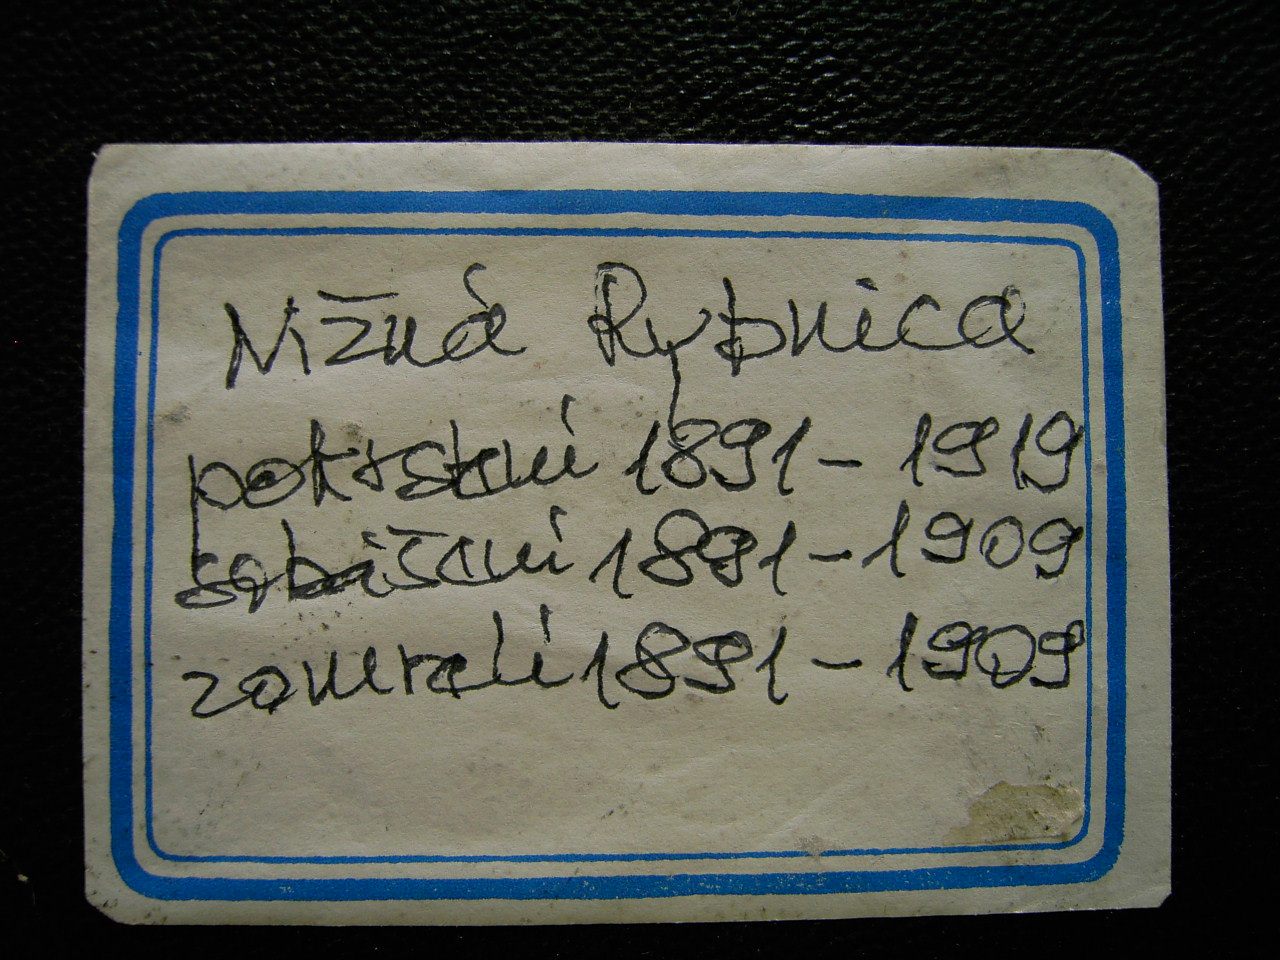 Nižná Rybnica
pokrstení 1891 - 1919
sobášení 1891 - 1909
zomreli 1891 - 1909